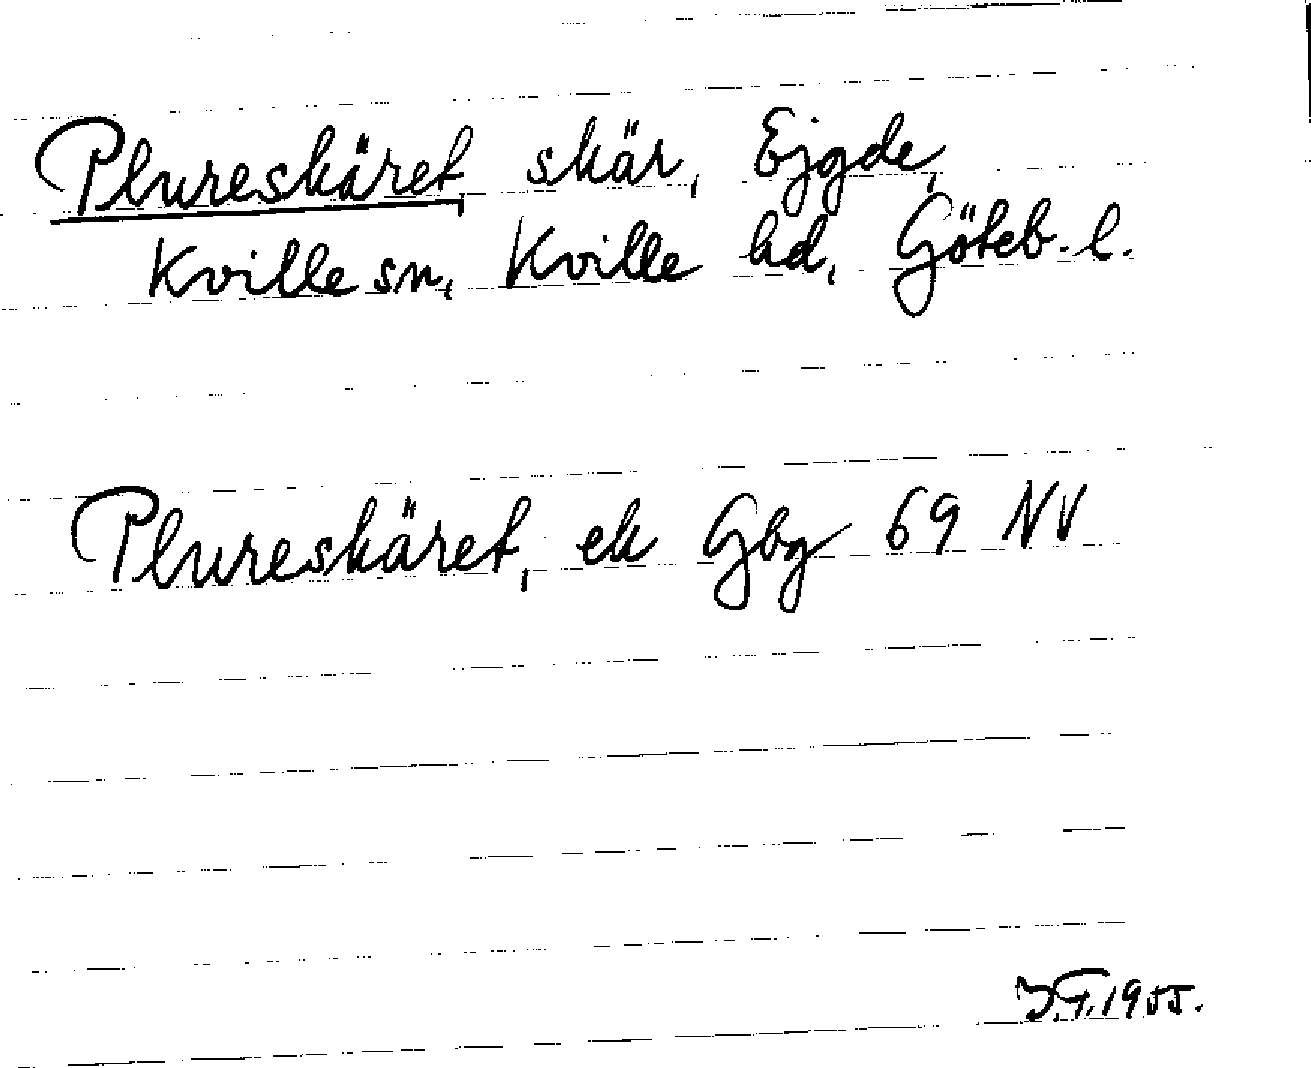 Plureskäret, skär, Ejgde,
Kville sn, Kville hd, Göteb. l.
Plureskäret, ek Gbg 69 NV
J.T. 1955.